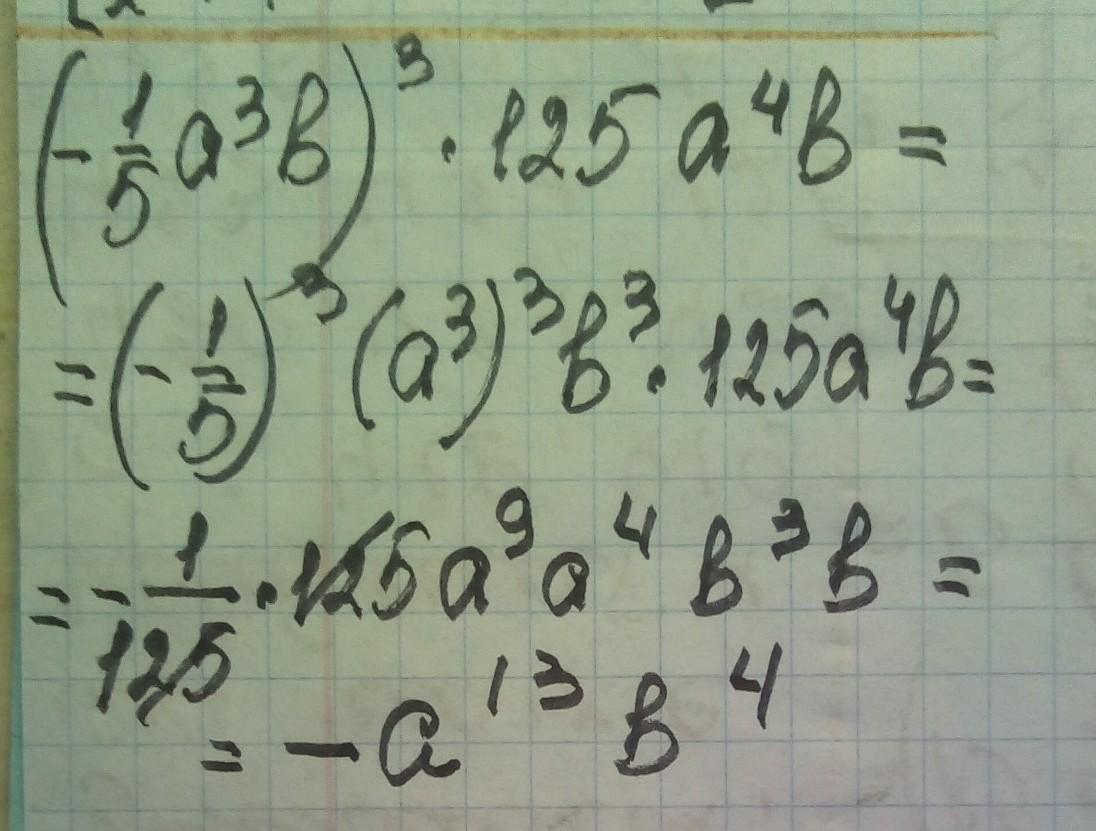 (-1/5 a³b)³ · 125 a⁴b =
= (-1/5)³ (a³)³ b³ · 125a⁴b =
= -1/125 · 125a⁹a⁴ b³b =
= -a¹³b⁴